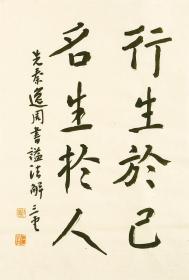 行生於己
名生於人
先秦逸周書謚法解 三豊